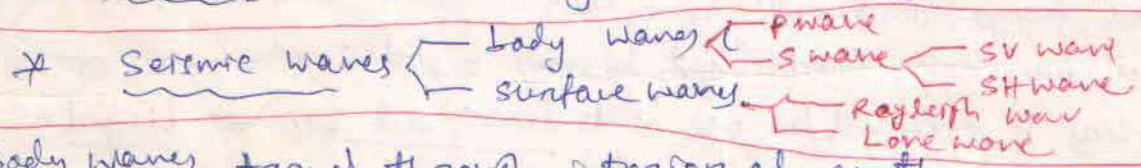 * Seismic waves body waves P wave
S wave SV wave
SH wave
surface waves. Rayleigh wave
Love wave
body waves travel through interior of earth